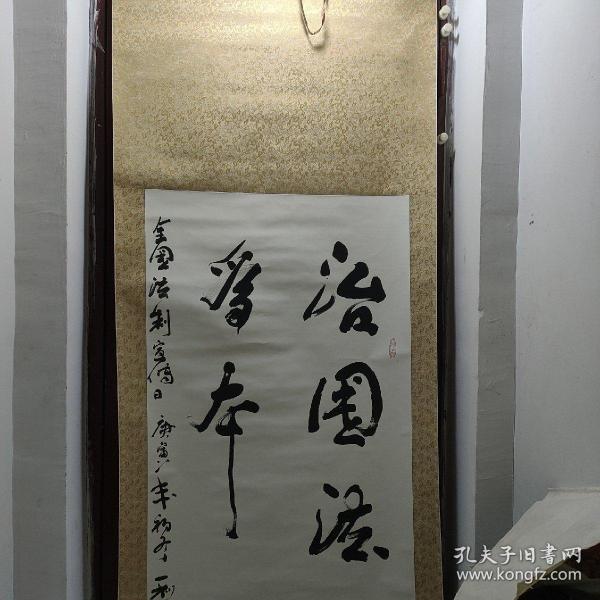 治国法
为本
全国法制宣传日 庚寅年初冬 一
孔夫子旧书网
www.kongfz.com